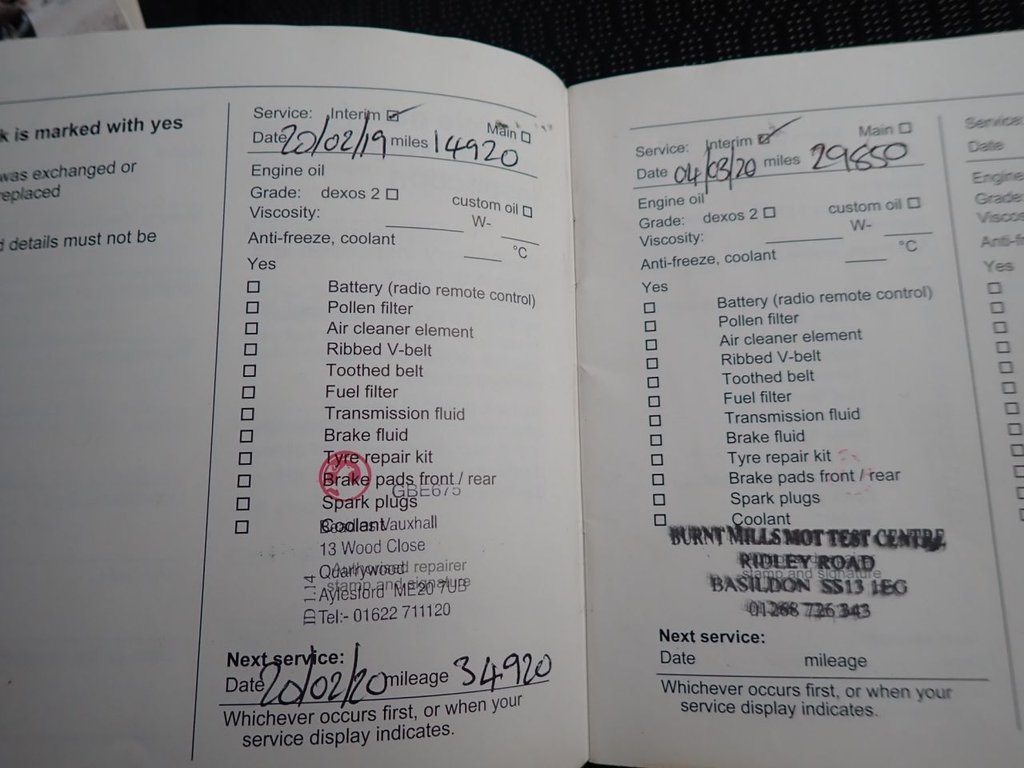 k is marked with yes
was exchanged or
replaced
d details must not be
Service: Interim Main
Date 20/02/19 miles 14920
Engine oil
Grade: dexos 2 custom oil
Viscosity: W-
Anti-freeze, coolant °C
Yes
Battery (radio remote control)
Pollen filter
Air cleaner element
Ribbed V-belt
Toothed belt
Fuel filter
Transmission fluid
Brake fluid
Tyre repair kit
Brake pads front / rear
GBE675
Spark plugs
Coolant
Vauxhall
13 Wood Close
Quarrywood
Authorised repairer
stamp and signature
Aylesford ME20 7UB
Tel:- 01622 711120
Next service:
Date 20/02/20 mileage 34920
Whichever occurs first, or when your
service display indicates.
Service: Interim Main
Date 04/03/20 miles 29850
Engine oil
Grade: dexos 2 custom oil
Viscosity: W-
Anti-freeze, coolant °C
Yes
Battery (radio remote control)
Pollen filter
Air cleaner element
Ribbed V-belt
Toothed belt
Fuel filter
Transmission fluid
Brake fluid
Tyre repair kit
Brake pads front / rear
Spark plugs
Coolant
BURNT MILLS MOT TEST CENTRE
RIDLEY ROAD
stamp and signature
BASILDON SS13 1EG
01268 726 343
Next service:
Date mileage
Whichever occurs first, or when your
service display indicates.
Service:
Date
Engine
Grade:
Visco
Anti-f
Yes